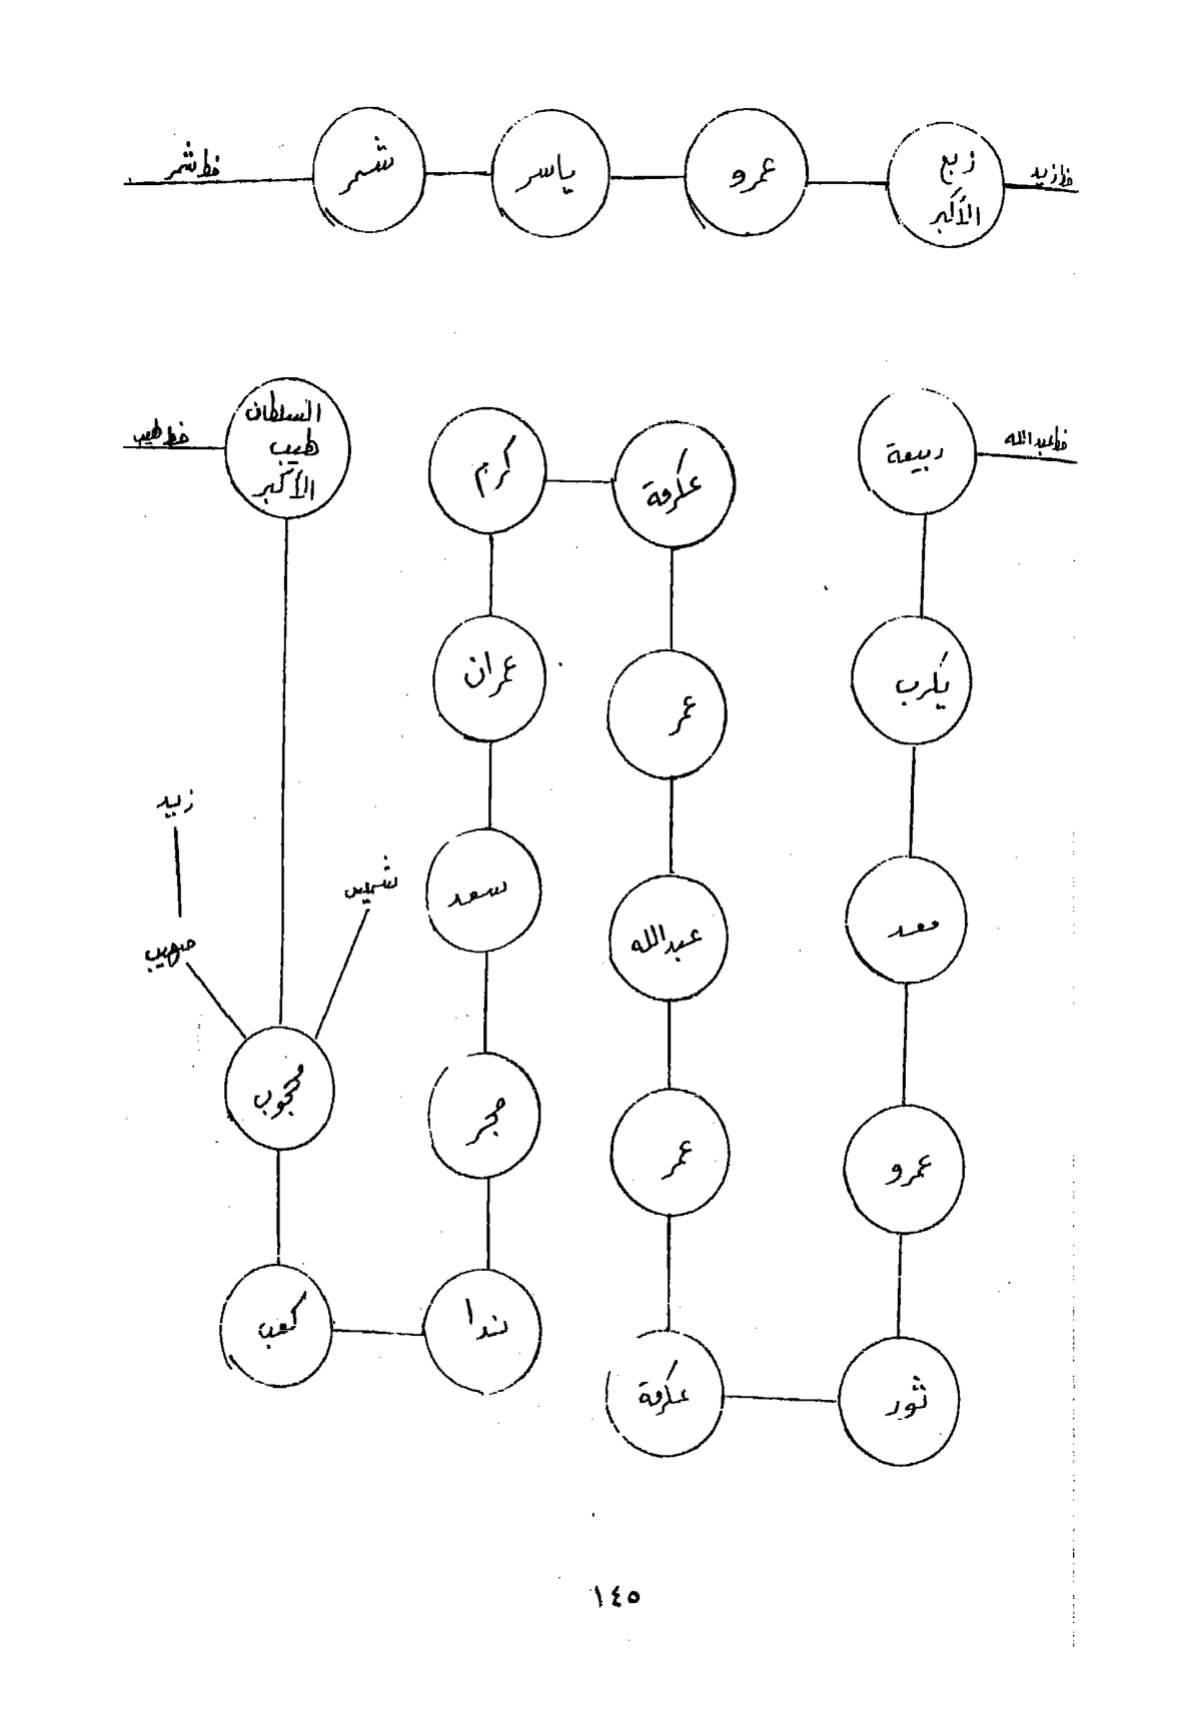 خط زيد
زيع
الأكبر
عمرو
ياسر
شمر
خط شمر
خط عبدالله
ربيعة
يكرب
معد
عمرو
ثور
عكرمة
عمر
عبدالله
عمر
عكرمة
كرم
عمران
سعد
حجر
ندا
كعب
محجوب
شميس
صهيب
زيد
السلطان
طيب
الأكبر
خط طيب
١٤٥